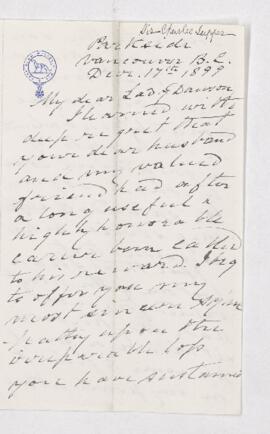 Sir Charles Tupper
Parkside
Vancouver B.C.
Decr. 17th 1899
My dear Lady Dawson
I learned with
deep regret that
your dear husband
and my valued
friend had after
a long useful &
highly honorable
career been called
to his reward. I beg
to offer you my
most sincere sym
-pathy upon the
irreparable loss
you have sustained